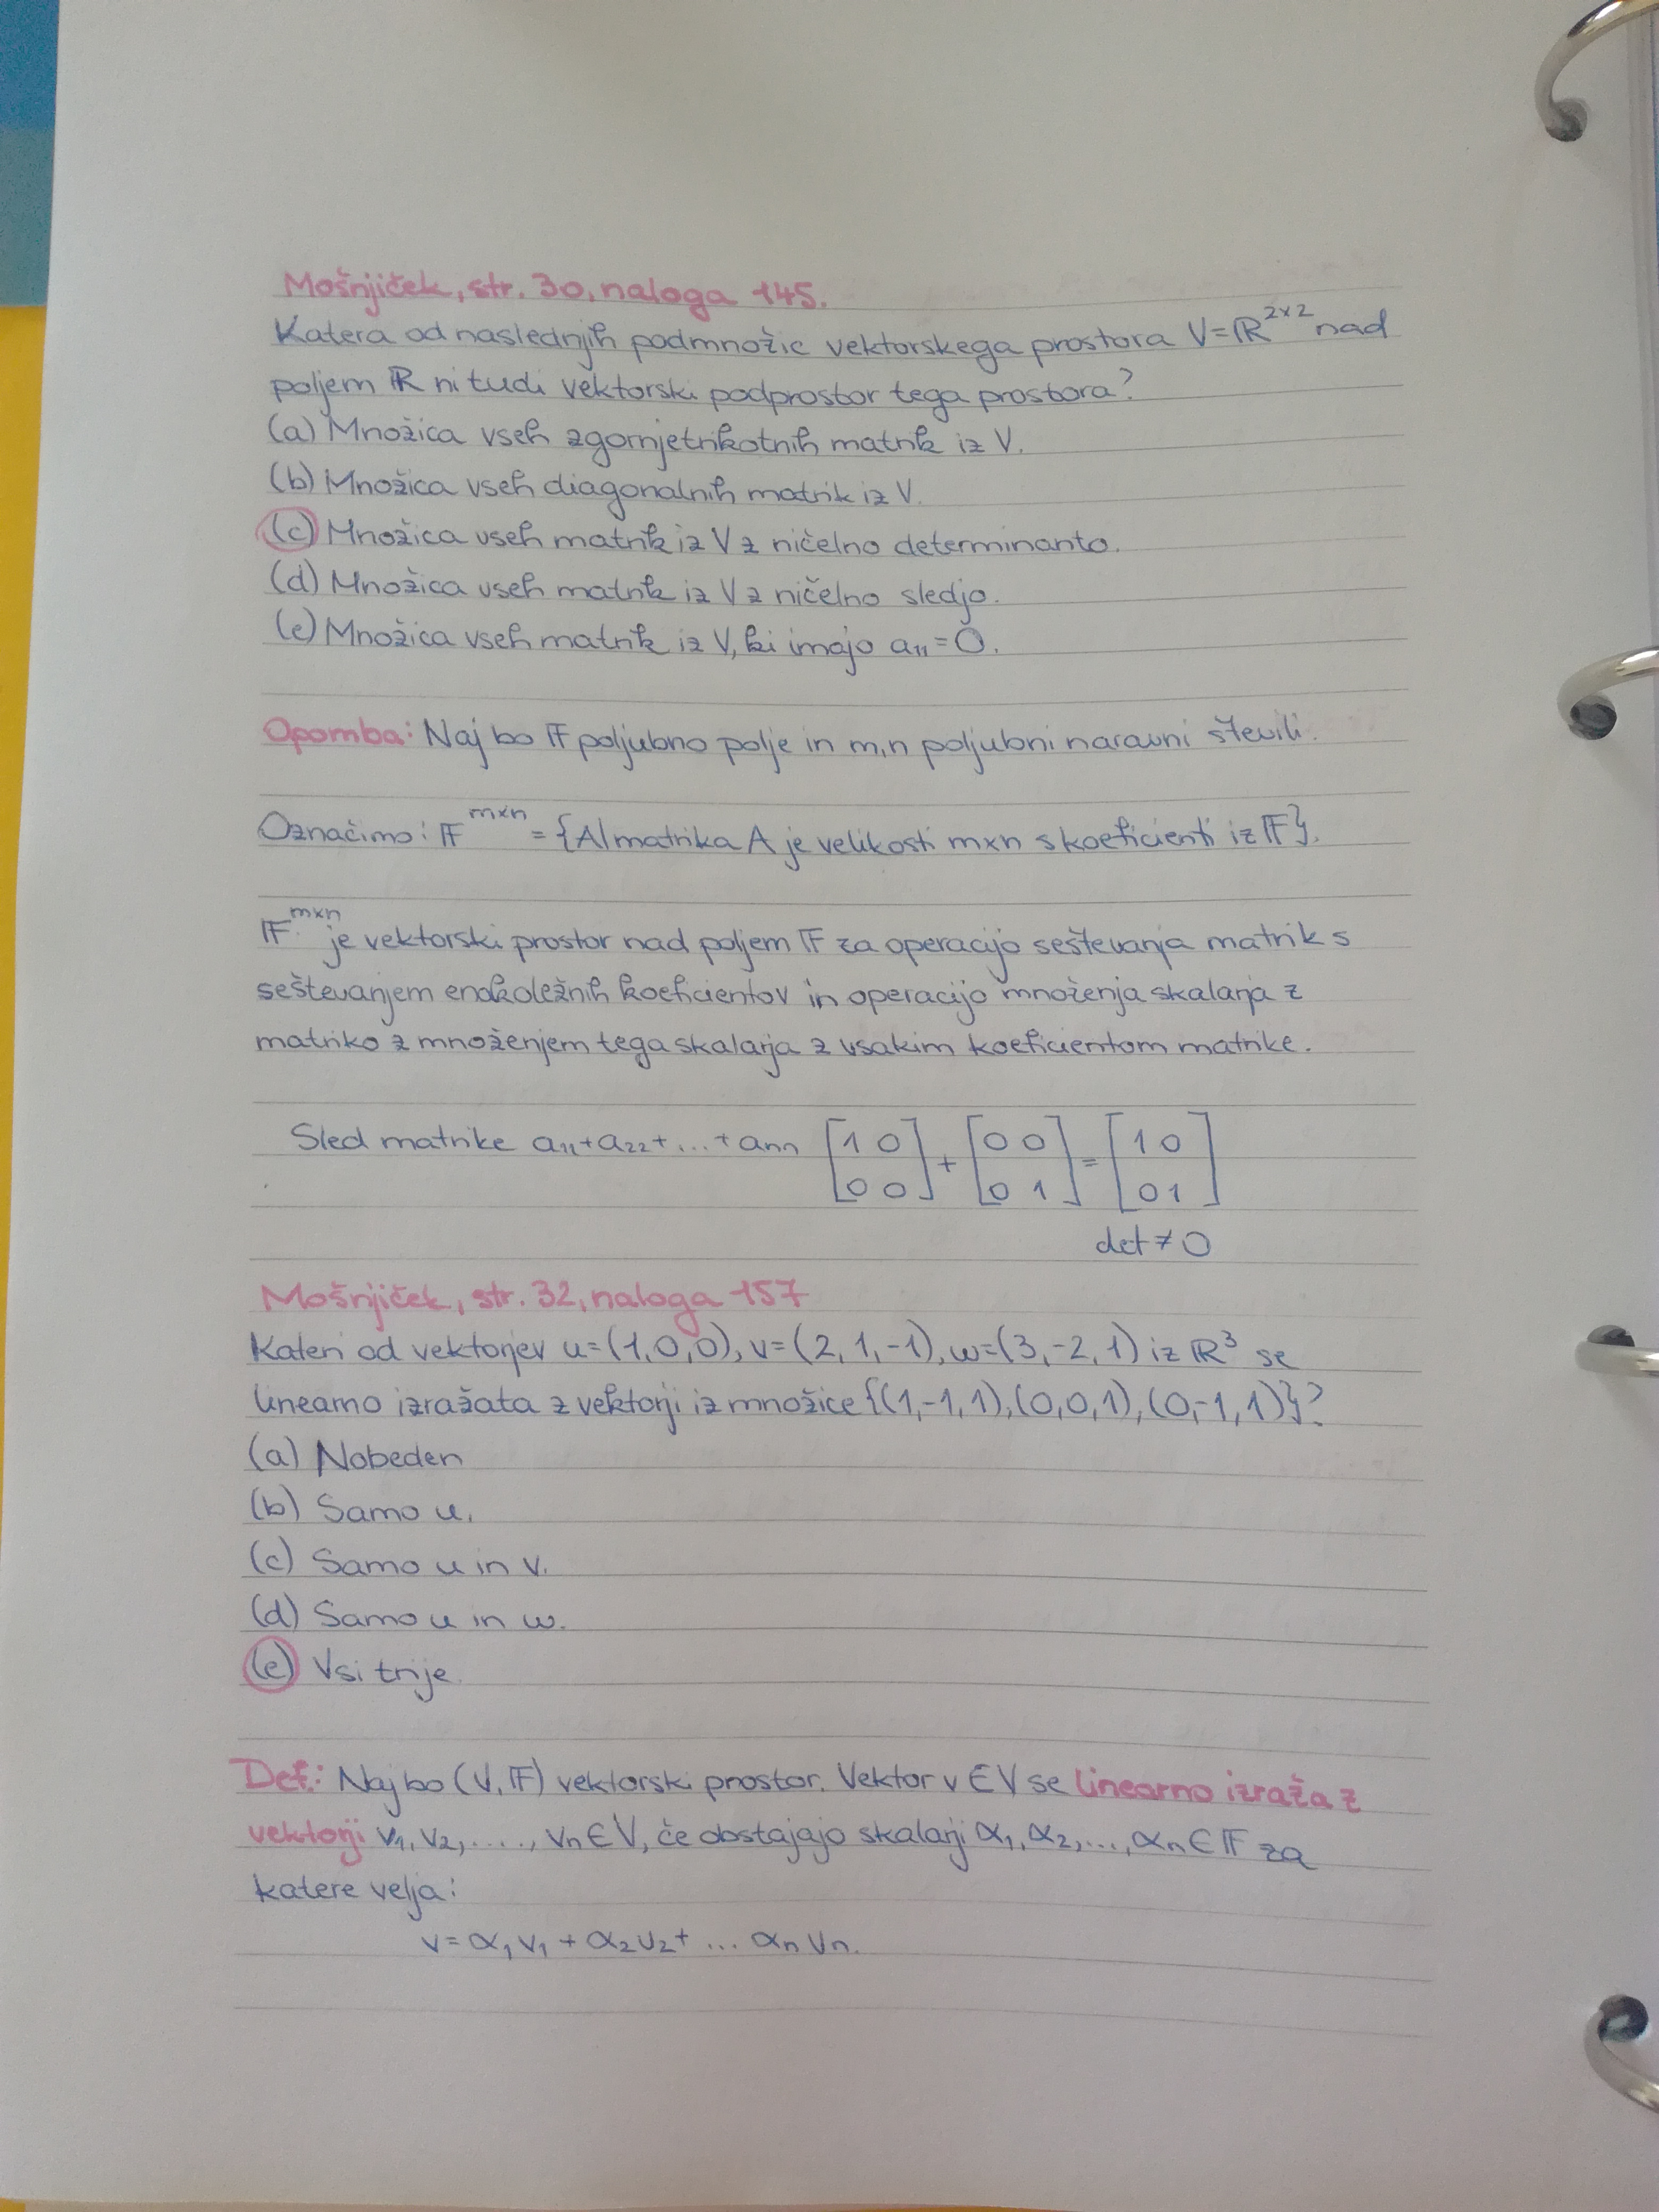 Mošnjiček, str. 30, naloga 145.
Katera od naslednjih podmnožic vektorskega prostora V=ℝ^{2×2} nad
poljem ℝ ni tudi vektorski podprostor tega prostora?
(a) Množica vseh zgornjetrikotnih matrik iz V.
(b) Množica vseh diagonalnih matrik iz V.
(c) Množica vseh matrik iz V z ničelno determinanto.
(d) Množica vseh matrik iz V z ničelno sledjo.
(e) Množica vseh matrik iz V, ki imajo a₁₁=0.
Opomba: Naj bo 𝔽 poljubno polje in m,n poljubni naravni števili.
Označimo: 𝔽^{m×n} = {A|matrika A je velikosti m×n s koeficienti iz 𝔽}.
𝔽^{m×n} je vektorski prostor nad poljem 𝔽 za operacijo seštevanja matrik s
seštevanjem enakoležnih koeficientov in operacijo množenja skalarja z
matriko z množenjem tega skalarja z vsakim koeficientom matrike.
Sled matrike a₁₁+a₂₂+...+aₙₙ [1 0; 0 0] + [0 0; 0 1] = [1 0; 0 1]
det ≠ 0
Mošnjiček, str. 32, naloga 157
Kateri od vektorjev u=(1,0,0), v=(2,1,-1), w=(3,-2,1) iz ℝ³ se
linearno izražata z vektorji iz množice {(1,-1,1),(0,0,1),(0,-1,1)}?
(a) Nobeden
(b) Samo u.
(c) Samo u in v.
(d) Samo u in w.
(e) Vsi trije.
Def.: Naj bo (V,𝔽) vektorski prostor. Vektor v∈V se linearno izraža z
vektorji v₁, v₂, ...., vₙ∈V, če obstajajo skalarji α₁, α₂, ..., αₙ∈𝔽 za
katere velja:
v=α₁v₁ + α₂v₂+ ... αₙvₙ.